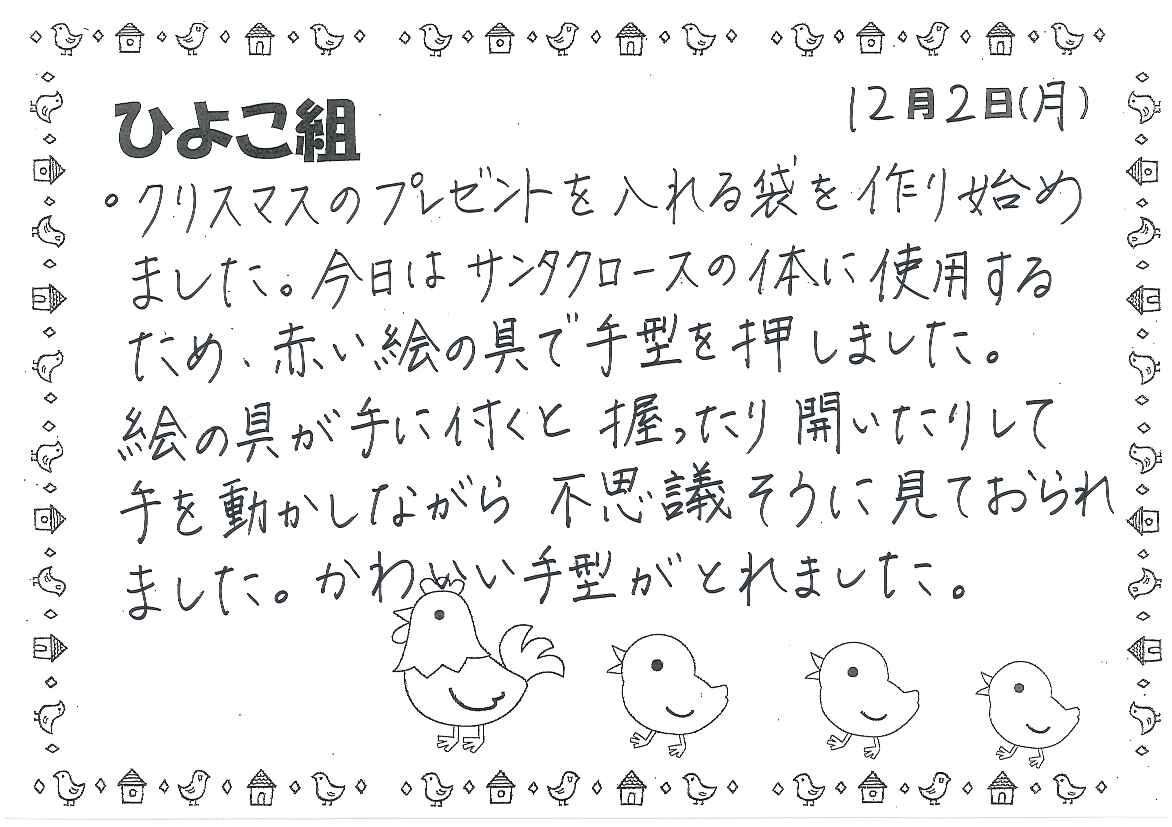 ひよこ組
12月2日(月)
。クリスマスのプレゼントを入れる袋を作り始め
ました。今日はサンタクロースの体に使用する
ため、赤い絵の具で手型を押しました。
絵の具が手に付くと握ったり開いたりして
手を動かしながら不思議そうに見ておられ
ました。かわいい手型がとれました。